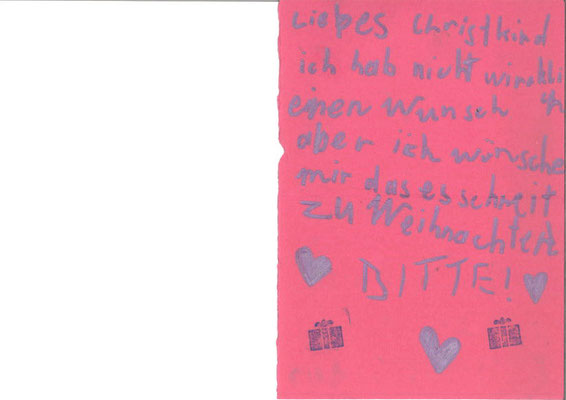 Liebes Christkind
ich hab nicht wirckli
einen Wunsch
aber ich wünsche
mir das es schneit
zu Weihnachten
BITTE!